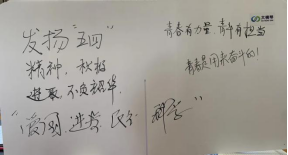 发扬"五四"
精神，积极
进取，不负韶华
"爱国、进步、民主、科学"
青春有力量 青年有担当
青春是用来奋斗的！